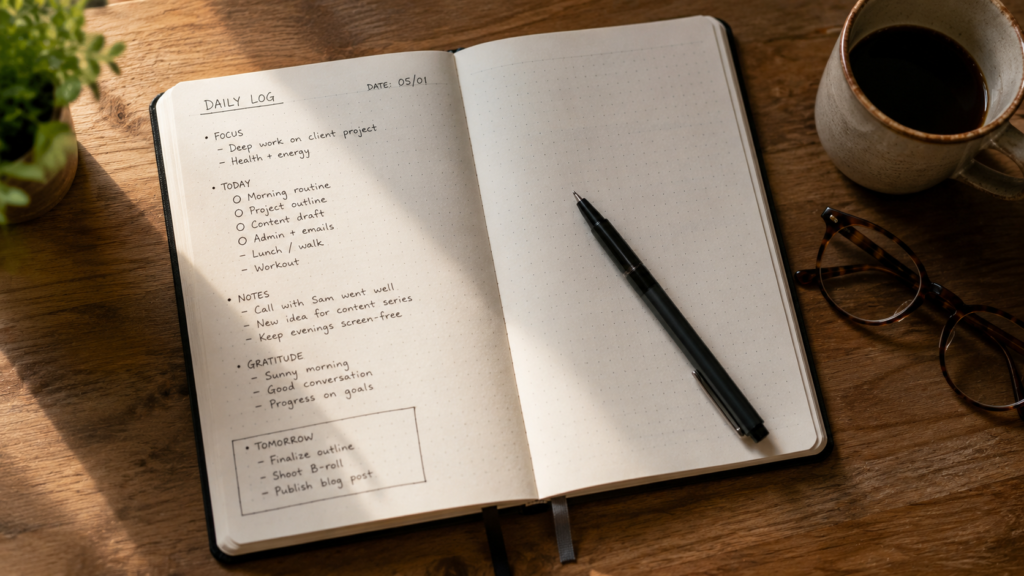 DAILY LOG
DATE: 05/01
• FOCUS
– Deep work on client project
– Health + energy
• TODAY
○ Morning routine
○ Project outline
○ Content draft
○ Admin + emails
– Lunch / walk
– Workout
• NOTES
– Call with Sam went well
– New idea for content series
– Keep evenings screen-free
• GRATITUDE
– Sunny morning
– Good conversation
– Progress on goals
• TOMORROW
– Finalize outline
– Shoot B-roll
– Publish blog post